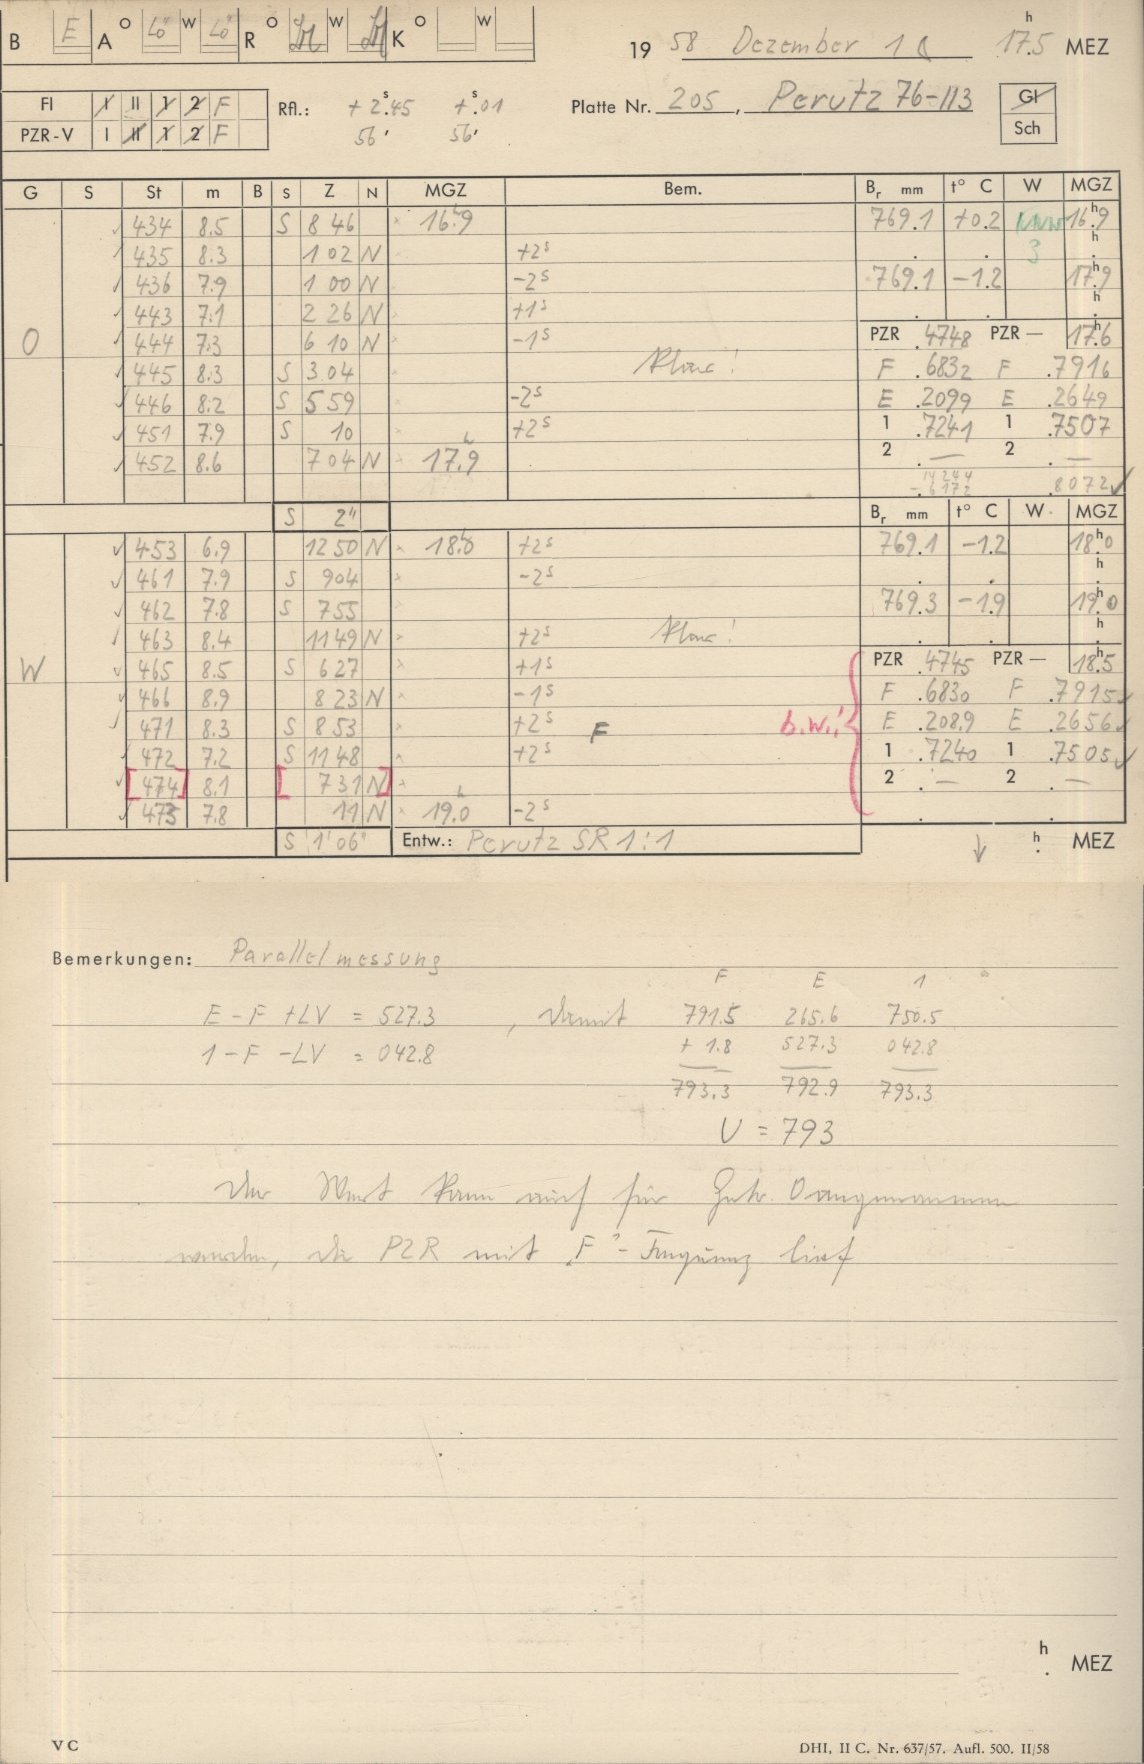 B E A O Lö W Lö R O W K O W
19 58 Dezember 1 17.5 h MEZ
FI I II 1 2 F
PZR-V I II 1 2 F
Rfl.: + 2.45 s + .01 s
56' 56'
Platte Nr. 205, Perutz 76-113
Gl
Sch
G S St m B s Z N MGZ Bem. Br mm t° C W MGZ
434 8.5 S 8 46 × 16.9 h 769.1 +0.2 NNW 16.9 h
435 8.3 1 02 N +2s 3 h
436 7.9 1 00 N -2s 769.1 -1.2 17.9 h
443 7.1 2 26 N +1s h
O 444 7.3 6 10 N -1s PZR .4748 PZR — 17.6 h
445 8.3 S 3 04 Klar! F .6832 F .7916
446 8.2 S 5 59 -2s E .2099 E .2649
451 7.9 S 10 +2s 1 .7241 1 .7507
452 8.6 7 04 N 17.9 h 2 . — 2 . —
14 244
- 6172 8072 ✓
S 2" Br mm t° C W. MGZ
453 6.9 12 50 N × 18.0 h +2s 769.1 -1.2 18.0 h
461 7.9 S 9 04 × -2s h
462 7.8 S 7 55 769.3 -1.9 19.0 h
463 8.4 11 49 N × +2s Klar! h
W 465 8.5 S 6 27 × +1s PZR .4745 PZR — 18.5 h
466 8.9 8 23 N × -1s F .6830 F .7915 ✓
471 8.3 S 8 53 × +2s F b.w.! E .2089 E .2656 ✓
472 7.2 S 11 48 × +2s 1 .7240 1 .7505 ✓
[474] 8.1 [ 7 31 N] × 2 . — 2 . —
475 7.8 11 N × 19.0 h -2s
S 1'06" Entw.: Perutz SR 1:1 ↓ h MEZ
Bemerkungen: Parallelmessung
F E 1
E - F + LV = 527.3 , damit 791.5 265.6 750.5
1 - F - LV = 042.8 + 1.8 527.3 042.8
793.3 792.9 793.3
U = 793
Der Wert kann auch für Gr. O angenommen
werden, da PZR mit "F"-Frequenz lief
h
. MEZ
VC
DHI, II C. Nr. 637/57. Aufl. 500. II/58